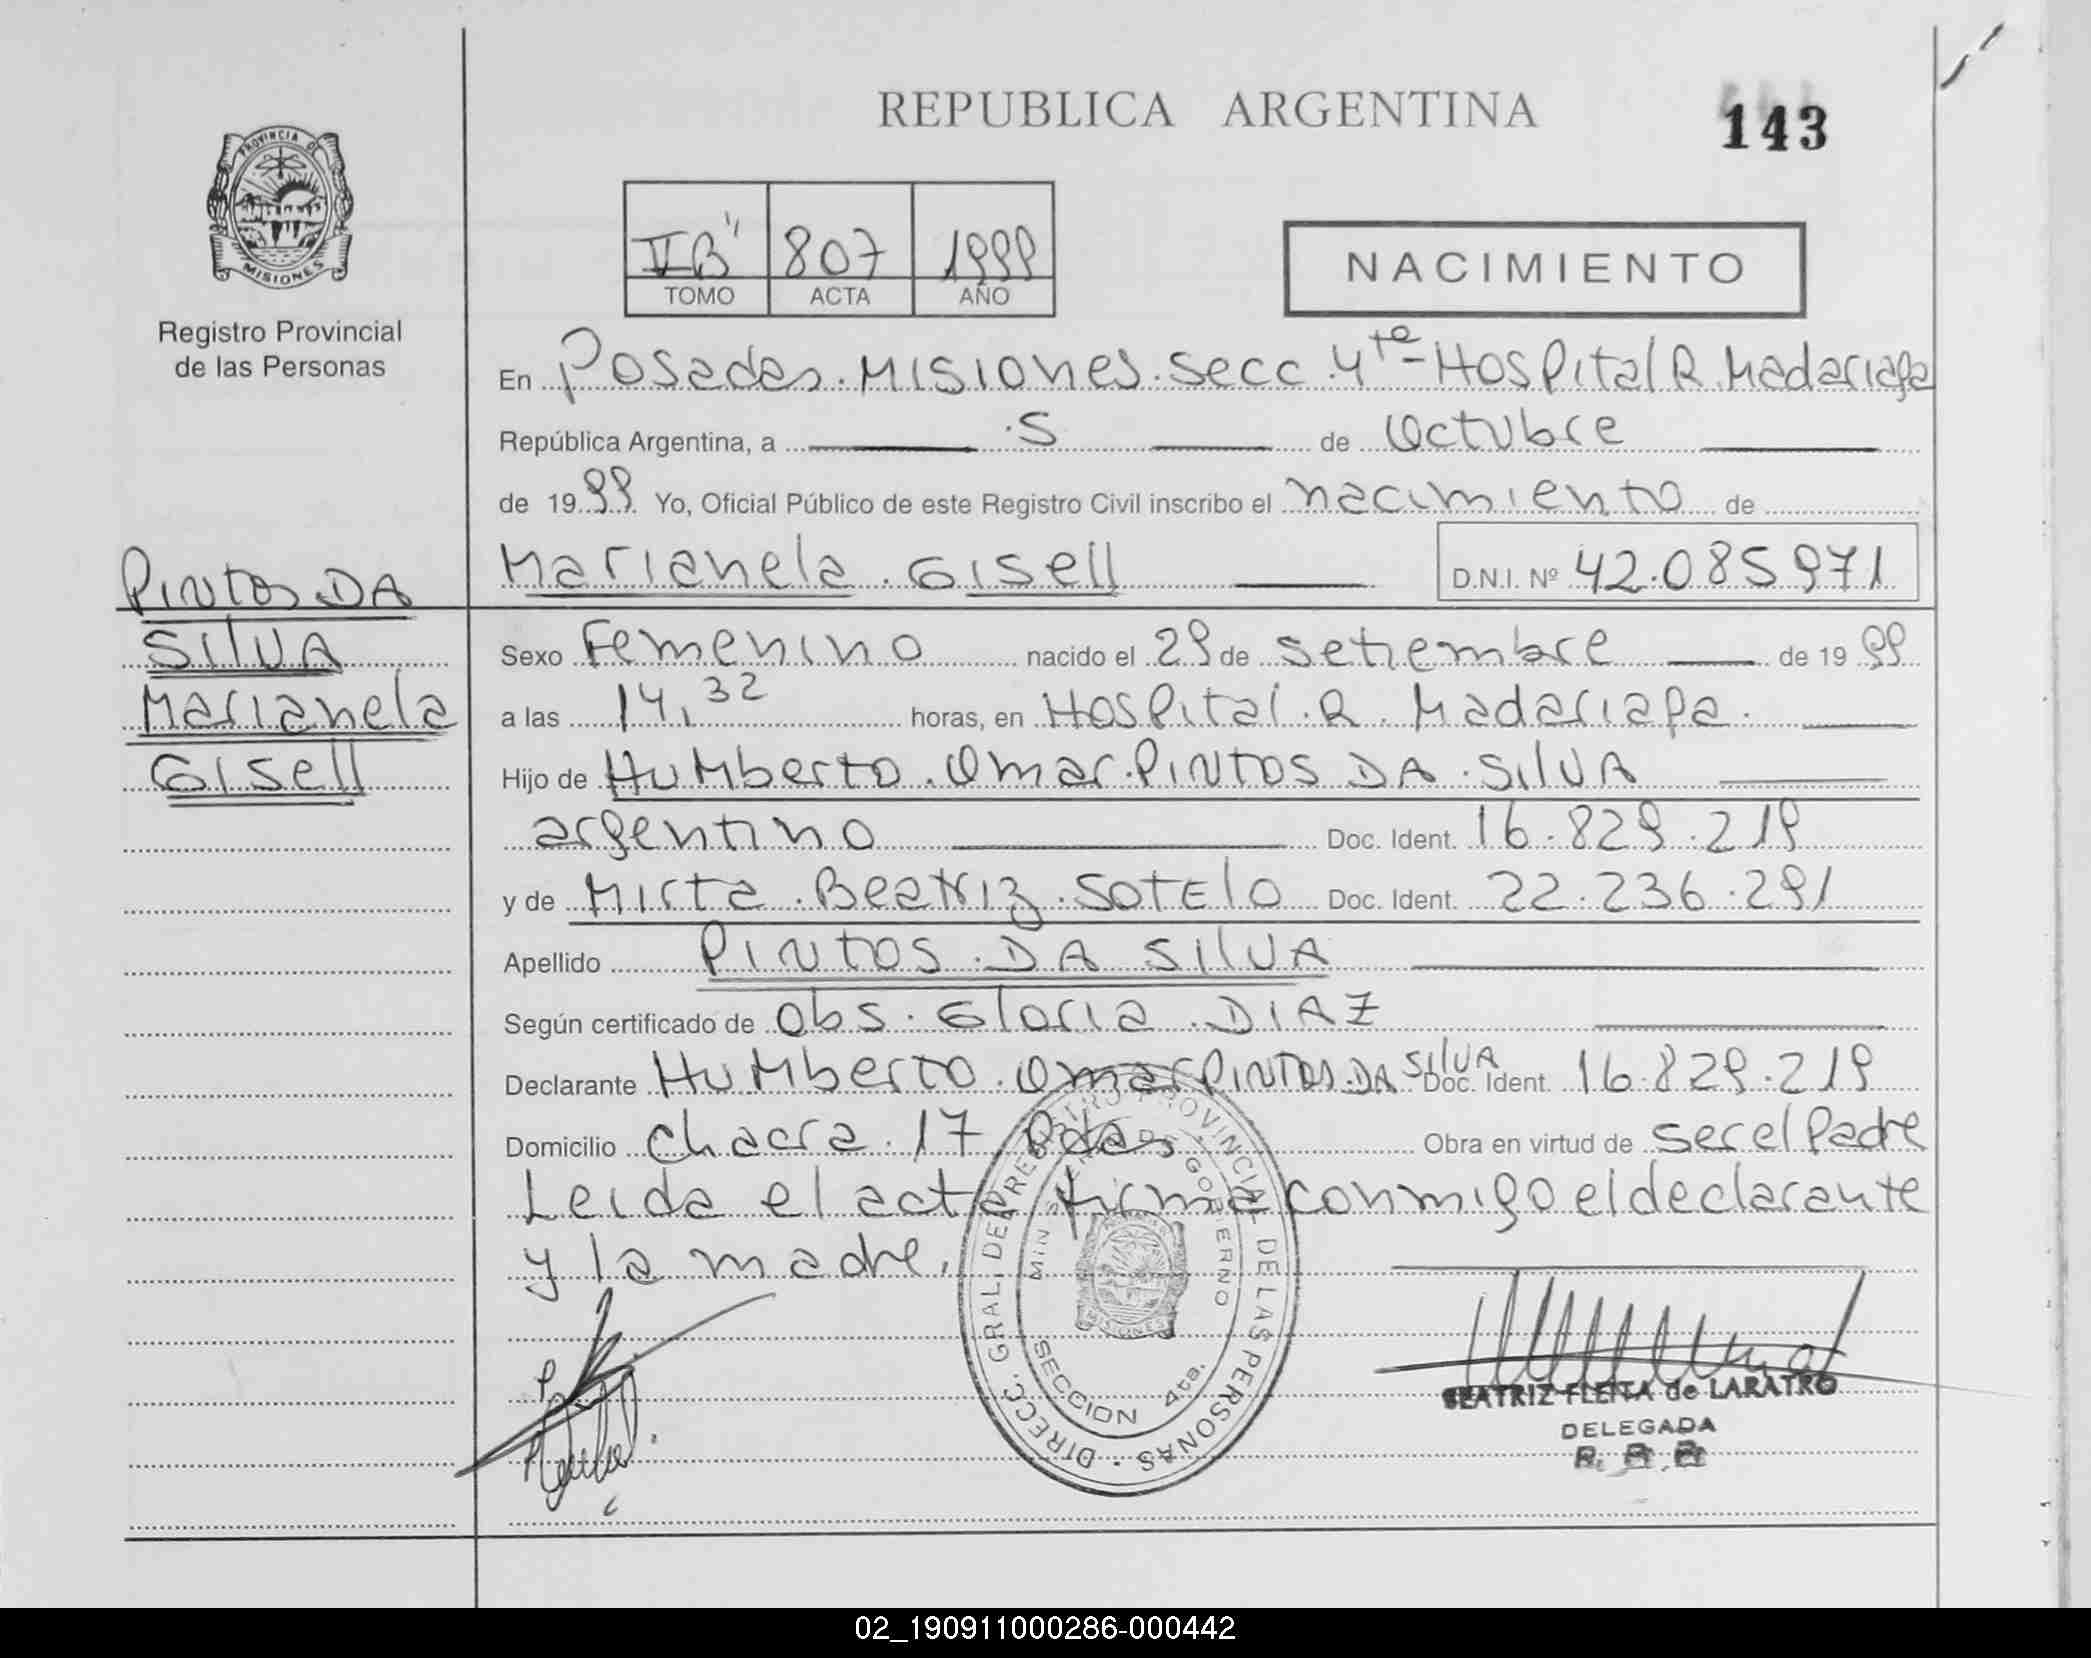 REPUBLICA ARGENTINA
143
PROVINCIA DE
MISIONES
Registro Provincial
de las Personas
II B' 807 1999
TOMO ACTA AÑO
NACIMIENTO
En Posadas. Misiones. Secc. 4ta - Hospital R. Madariaga
República Argentina, a 5 de Octubre
de 1999 Yo, Oficial Público de este Registro Civil inscribo el nacimiento de
Marianela Gisell D.N.I. Nº 42.085971
PINTOS DA
SILVA
Marianela
Gisell
Sexo Femenino nacido el 29 de setiembre de 1999
a las 14,32 horas, en Hospital R. Madariaga.
Hijo de Humberto Omar PINTOS DA SILVA
argentino Doc. Ident. 16.829.219
y de Mirta Beatriz SOTELO Doc. Ident. 22.236.291
Apellido PINTOS DA SILVA
Según certificado de Obs. Gloria DIAZ
Declarante Humberto Omar PINTOS DA SILVA Doc. Ident. 16.829.219
Domicilio Chacra 17 Pdas, Obra en virtud de ser el Padre
Leida el acta firma conmigo el declarante
y la madre.
DIRECC. GRAL. DEL REGISTRO PROVINCIAL DE LAS PERSONAS
MIN DE GOBIERNO
MISIONES
SECCION 4ta.
BEATRIZ FLEITA de LARATRO
DELEGADA
02_190911000286-000442